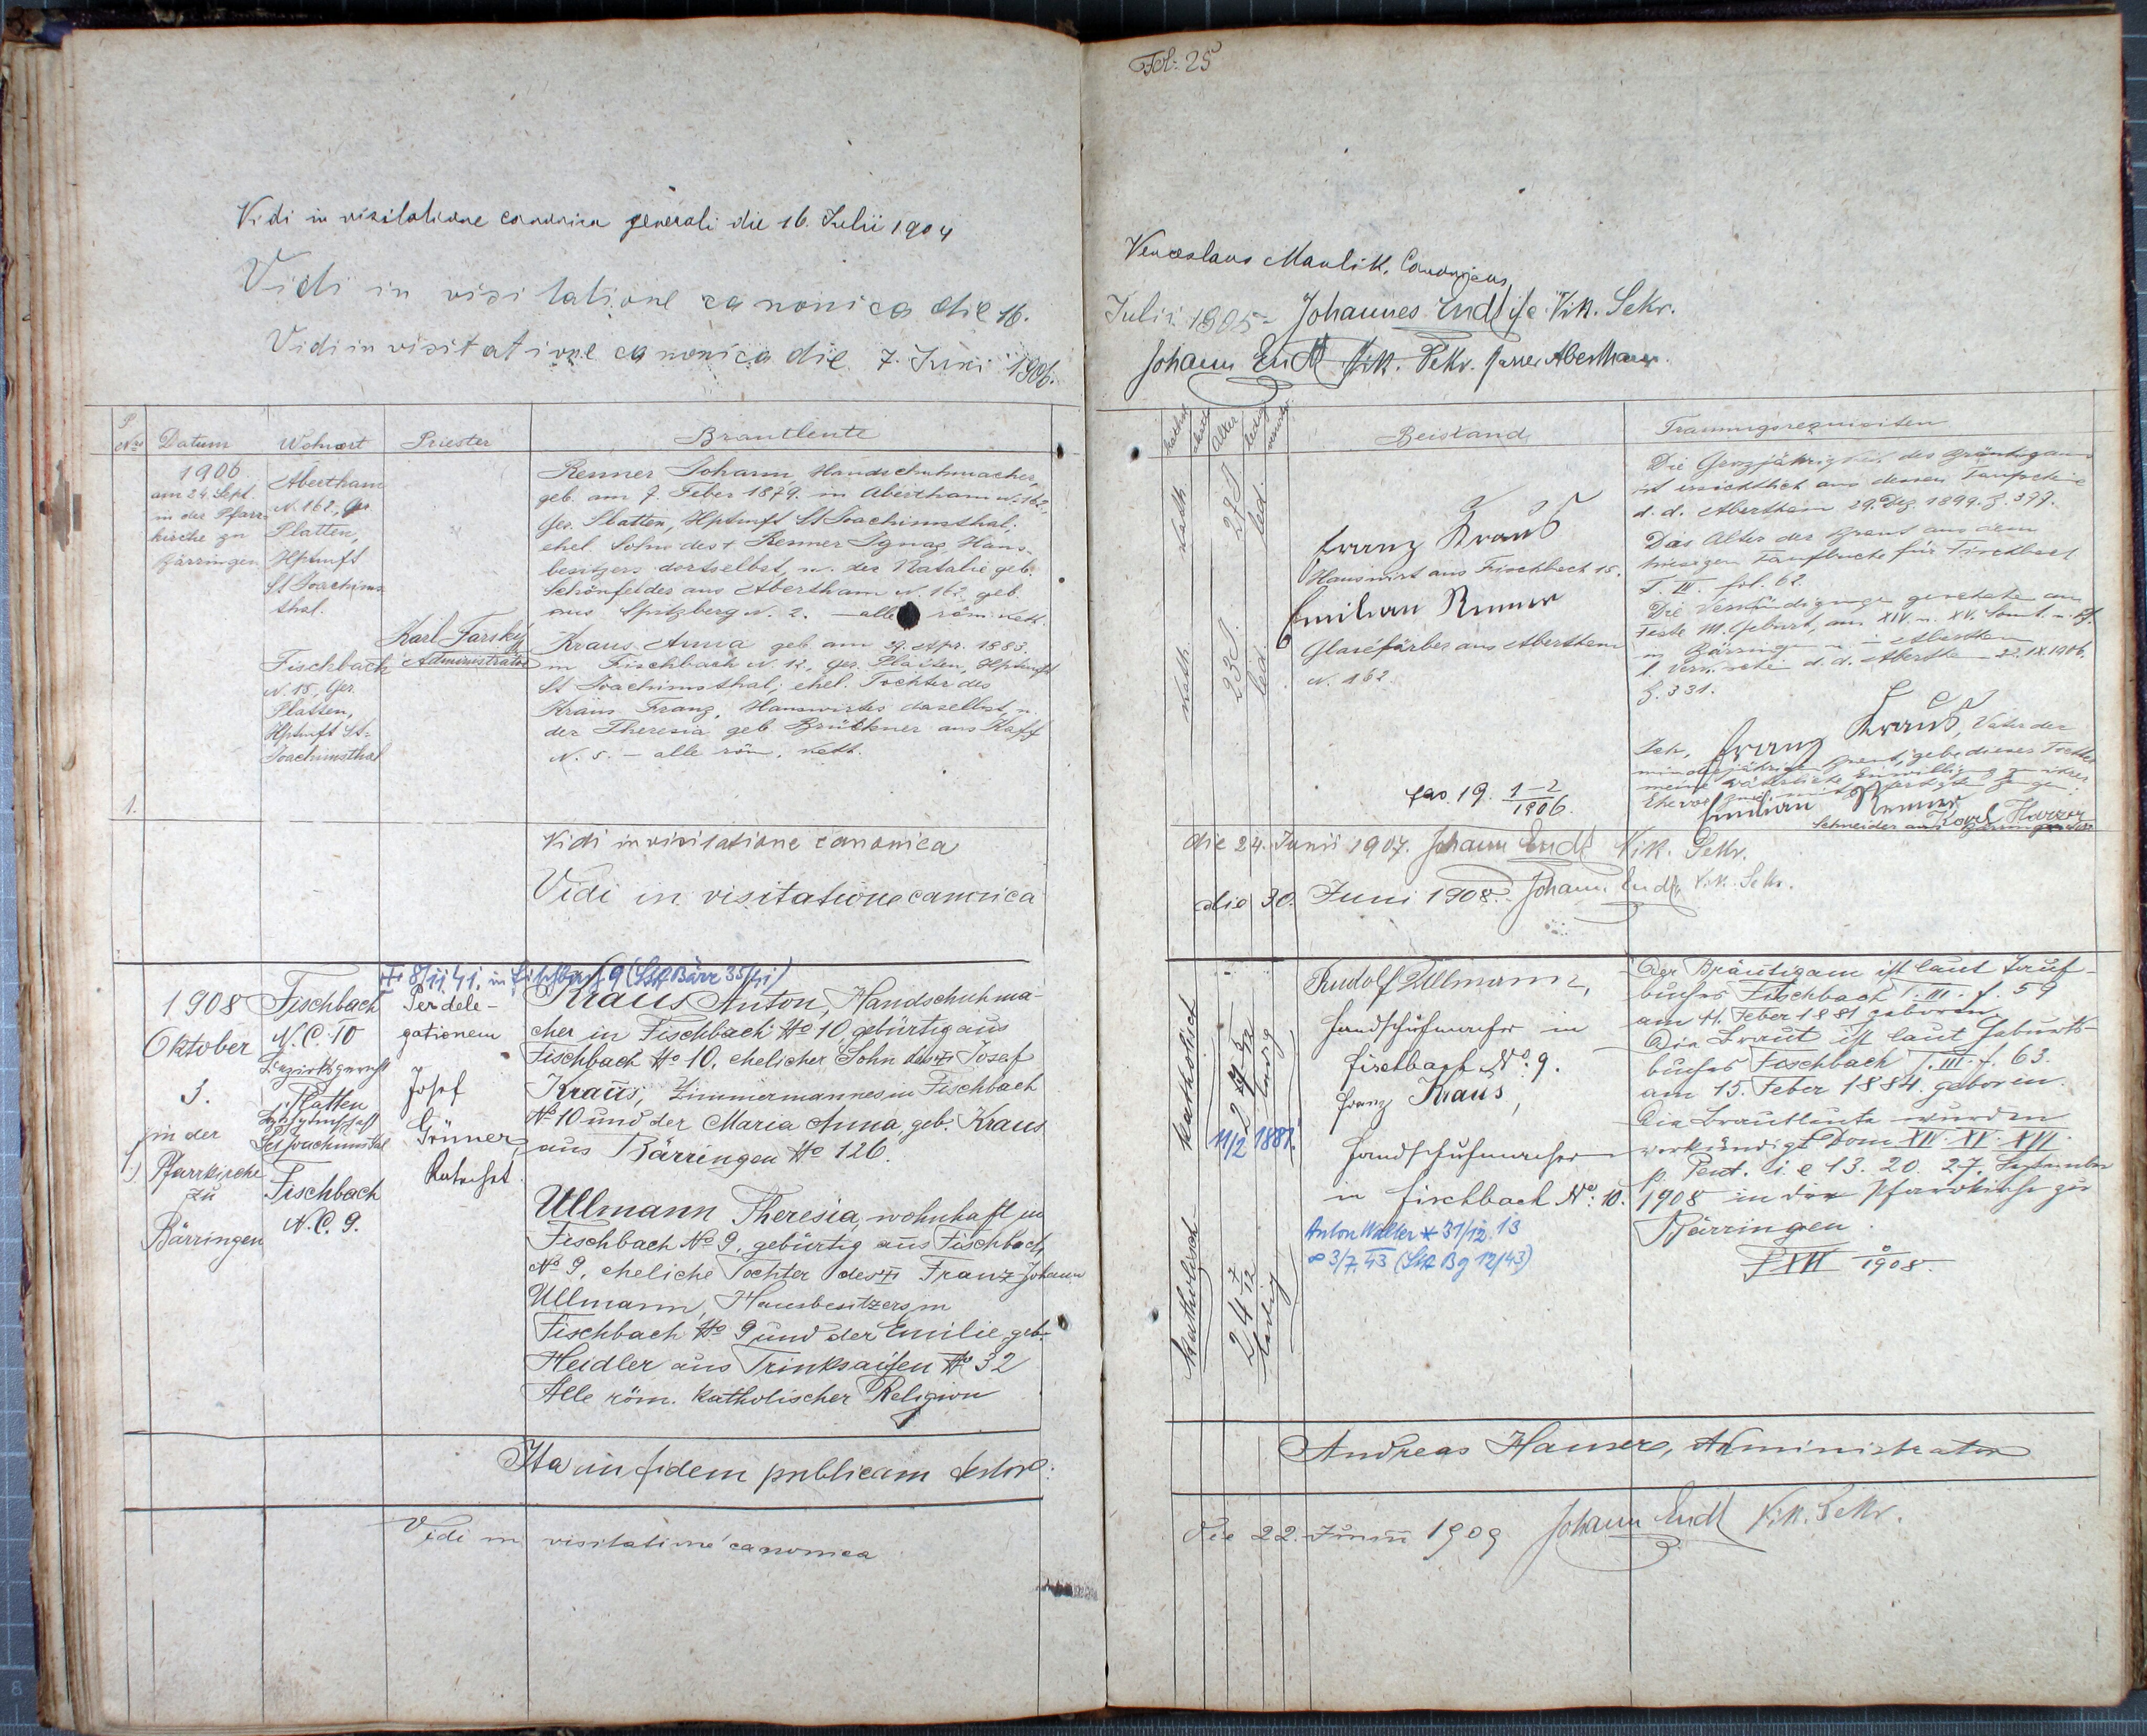 Fol: 25
Vidi in visitatione canonica generali die 16. Julii 1904
Venceslaus Maulik, Canonicus
Vidi in visitatione canonica die 16.
Julii 1905 - Johannes Endt Vik. Sekr.
Vidi in visitatione canonica die 7. Juni 1906.
Johann Endt Vik. Sekr. Abertham.
P
Nro
Datum
Wohnort
Priester
Brautleute
1906
am 24. Sept.
in der Pfarr-
kirche zu
Bärringen
Abertham
N. 162, Ger.
Platten,
Hptmft
St Joachims-
thal.
Fischbach
N. 15, Ger.
Platten,
Hptmft St-
Joachimsthal
Karl Farský
Administrator
Renner Johann, Handschuhmacher,
geb. am 7. Feber 1879. in Abertham N. 162,
Ger. Platten, Hptmft St Joachimsthal;
ehel. Sohn des + Renner Ignaz, Haus-
besitzers dortselbst, u. der Natalie geb.
Schönfelder aus Abertham N. 162, geb.
aus Spitzberg N. 2. - alle röm. kath.
Kraus Anna geb. am 29. Apr. 1883.
in Fischbach N. 15, Ger. Platten, Hptmft
St Joachimsthal; ehel. Tochter des
Kraus Franz, Hauswirtes daselbst, u.
der Theresia geb. Brückner aus Kaff
N. 5. - alle röm. kath.
1.
Alter
ledig
kath.
27 J.
led.
kath.
23 J.
led.
Beistand
Franz Kraus
Hauswirt aus Fischbach 15.
Emilian Renner
Glacéfärber aus Abertham
N. 162.
fas. 19. 1-2
1906.
Trauungsrequisiten
Die Grosjährigkeit des Bräutigams
ist ersichtlich aus dessen Taufscheine
d. d. Abertham 29. Dez. 1899. Z. 399.
Das Alter der Braut aus dem
hiesigen Taufbuche für Fischbach
T. III. fol. 62.
Die Verkündigungen geschahen am
Feste M. Geburt, am XIV. u. XV. Sont. n. Pf.
in Bärringen u. in Abertham
l. Verk.schein d. d. Abertham 22. IX. 1906.
Z. 331.
Ich, Franz Kraus, Vater der
minderjährigen Braut, gebe dieser Tochter
meine väterliche Einwilligung zu ihrer
Ehe vor zwei mitgefertigten Zeugen.
Emilian Renner
Karl Harzer
Schneider aus Bärringen
Vidi in visitatione canonica
die 24. Junii 1907. Johann Endt Vik. Sekr.
Vidi in visitatione canonica
die 30. Juni 1908. Johann Endt, Vik. Sekr.
+ 8/11 41. in Fischbach 9 (StA Bärr 35/41)
1908
Oktober
3.
in der
1.) Pfarrkirche
zu
Bärringen
Fischbach
N. C. 10
Bezirksgericht
Platten
Bzkshptmschaft
Sct Joachimsthal
Fischbach
N. C. 9.
Per dele-
gationem
Josef
Grüner,
Katechet
Kraus Anton, Handschuhma-
cher in Fischbach No 10, gebürtig aus
Fischbach No 10, ehelicher Sohn des + Josef
Kraus, Zimmermannes in Fischbach
No 10 und der Maria Anna, geb. Kraus
aus Bärringen No 126.
Ullmann Theresia, wohnhaft in
Fischbach No 9, gebürtig aus Fischbach
No 9, eheliche Tochter des + Franz Johann
Ullmann, Hausbesitzers in
Fischbach No 9 und der Emilie, geb.
Heidler aus Trinksaifen No 32
Alle röm. katholischer Religion
katholisch
27 8/12
ledig
11/2 1881.
katholisch
24 7/12
ledig
Rudolf Ullmann,
Handschuhmacher in
Fischbach No. 9.
Franz Kraus,
Handschuhmacher
in Fischbach No. 10.
Anton Walter * 31/12. 13
∞ 3/7. 43 (StA Bg 12/43)
Der Bräutigam ist laut Tauf-
buches Fischbach T. III. f. 59
am 11. Feber 1881 geboren.
Die Braut ist laut Geburts-
buches Fischbach T. III. f. 63.
am 15. Feber 1884. geboren.
Die Brautleute wurden
verkündigt Dom XIV. XV. XVI.
p. Pent. i. e 13. 20. 27. September
1908 in der Pfarrkirche zu
Bärringen.
1908.
Ita in fidem publicam testor:
Andreas Hauser, Administrator
Vidi in visitatione canonica
die 22. Junii 1909 Johann Endt Vik. Sekr.